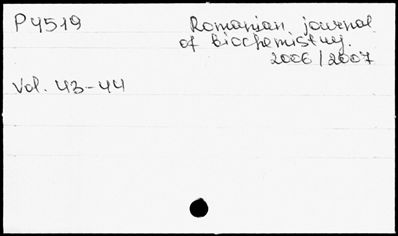 P 4519
Romanian journal
of biochemistry.
2006/2007
Vol. 43-44